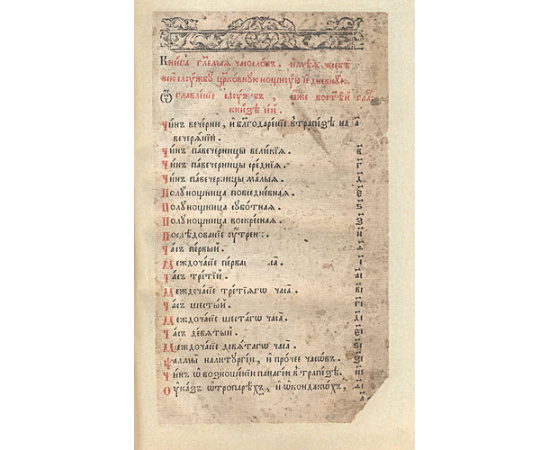 Книга гл҃емая часословъ, имѣя
вею слꙋжбꙋ цр҃ковнꙋю нощнꙋю и дневнꙋю.
Ѡглавленїе слꙋжбъ,
книзѣ сей.
Чи́нъ вечерни, и҆ бл҃годаренїе в̾трапезѣ на а
вечерѧнїй.
Чи́нъ па́вечерницы великїѧ. в
Чи́нъ па́вечерницы среднїѧ. г
Чи́нъ па́вечерницы малыѧ. д
Полꙋнощница повседневнаѧ. е
Полꙋнощница сꙋботнаѧ. ѕ
Полꙋнощница воскреснаѧ. з
Послѣдованїе ꙋтрени: и
Ча́съ первый.
Междочасїе перва са. і
Ча́съ третїй. аі
Междочасїе третїѧгѡ часа. ві
Ча́съ шестый. гі
Междочасїе шестагѡ часа. ді
Ча́съ девѧтый. еі
Междочасїе девѧтагѡ часа. ѕі
Ѱалмы на литꙋргїи, и҆ прочее часовъ. зі
Чи́нъ ѡ возношенїи панагїи в̾трапезѣ.
Оука́зъ ѡ тропарехъ, и҆ ѡ кондакохъ,